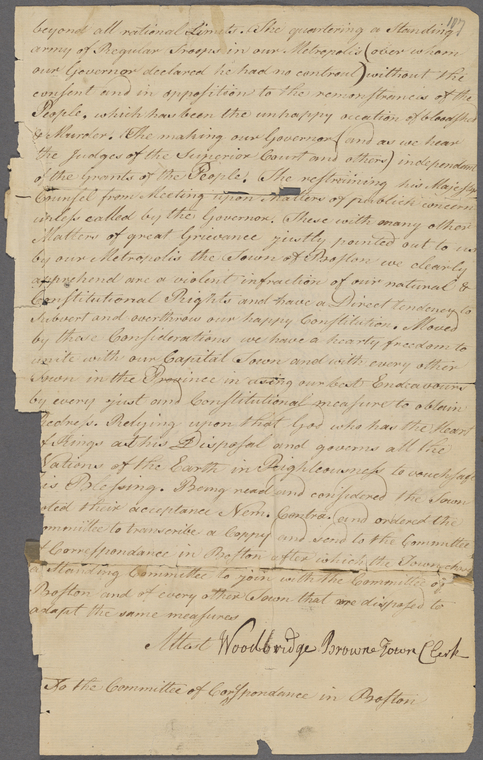 1077
beyond all rational Limets. The quartering a Standing
army of Regular Troops in our Metropolis (over whom
our Governor declared he had no controul) without the
consent and in opposition to the remonstrances of the
People, which has been the unhappy occation of bloodshed
& Murder. The making our Governor (and as we hear
the Judges of the Superior Court and others) independant
of the Grants of the People. The restraining his Majestys
Counsel from Meeting upon Matters of publick concern
unless called by the Governor. These with many other
Matters of great Grievance justly pointed out to us
by our Metropolis the Town of Boston we clearly
apprehend are a violent infraction of our natural &
Constitutional Rights and have a Direct tendency to
subvert and overthrow our happy Constitution. Moved
by these Considerations we have a hearly freedom to
unite with our Capital Town and with every other
Town in the Province in using our best Endeavours
by every just and Constitutional measure to obtain
Redress. Relying upon that God who has the Heart
of Kings at his Disposal and governs all the
Nations of the Earth in Righteousness to vouchsafe
is Blessing. Being read and considered the Town
oted their acceptance Nem. Contra. and ordered the
ommittee to transcribe a Coppy and send to the Committee
f Correspondance in Boston after which the Town chose
a Standing Committee to join with the Committee of
Boston and of every other Town that are disposed to
adapt the same measures
Attest Woodbridge Browne Town Clerk
To the Committee of Correspondance in Boston